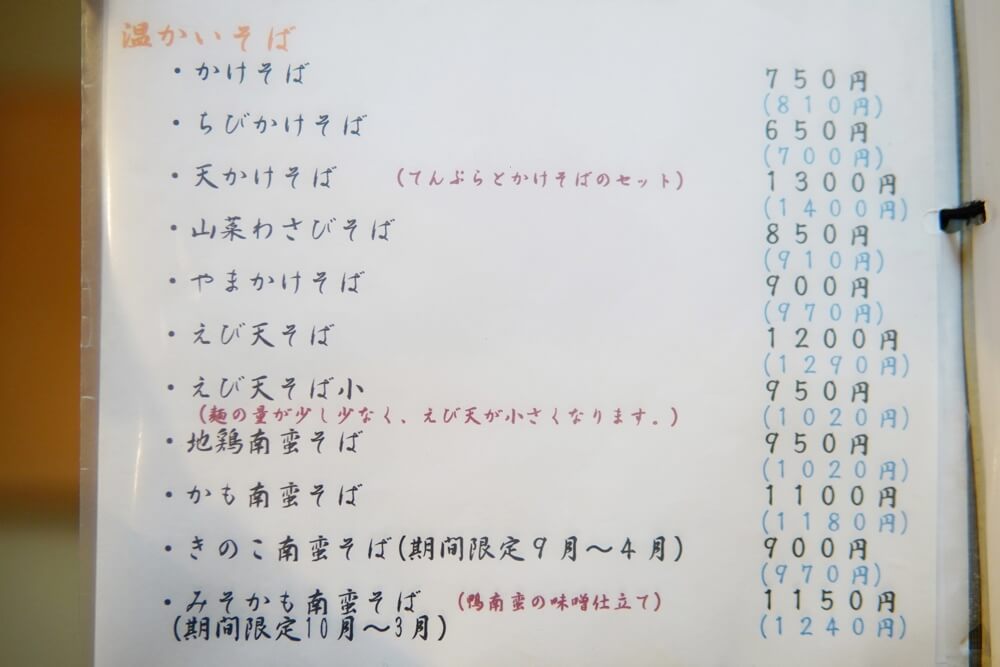 温かいそば
・かけそば 750円
(810円)
・ちびかけそば 650円
(700円)
・天かけそば (てんぷらとかけそばのセット) 1300円
(1400円)
・山菜わさびそば 850円
(910円)
・やまかけそば 900円
(970円)
・えび天そば 1200円
(1290円)
・えび天そば小 950円
(麺の量が少し少なく、えび天が小さくなります。) (1020円)
・地鶏南蛮そば 950円
(1020円)
・かも南蛮そば 1100円
(1180円)
・きのこ南蛮そば(期間限定9月～4月) 900円
(970円)
・みそかも南蛮そば (鴨南蛮の味噌仕立て) 1150円
(期間限定10月～3月) (1240円)